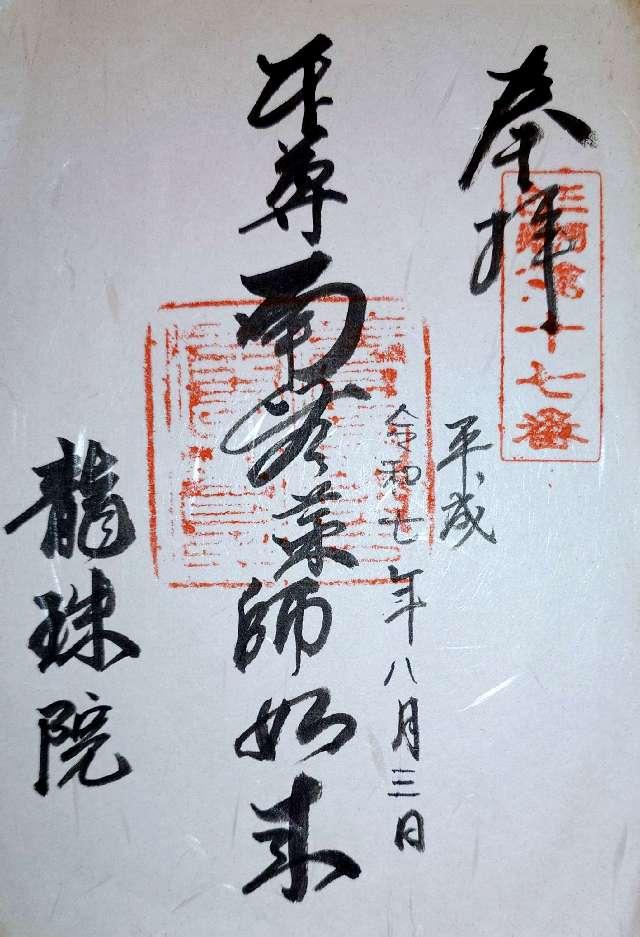 奉拝
第十七番
平成
令和七年八月三日
本尊南無薬師如来
龍珠院